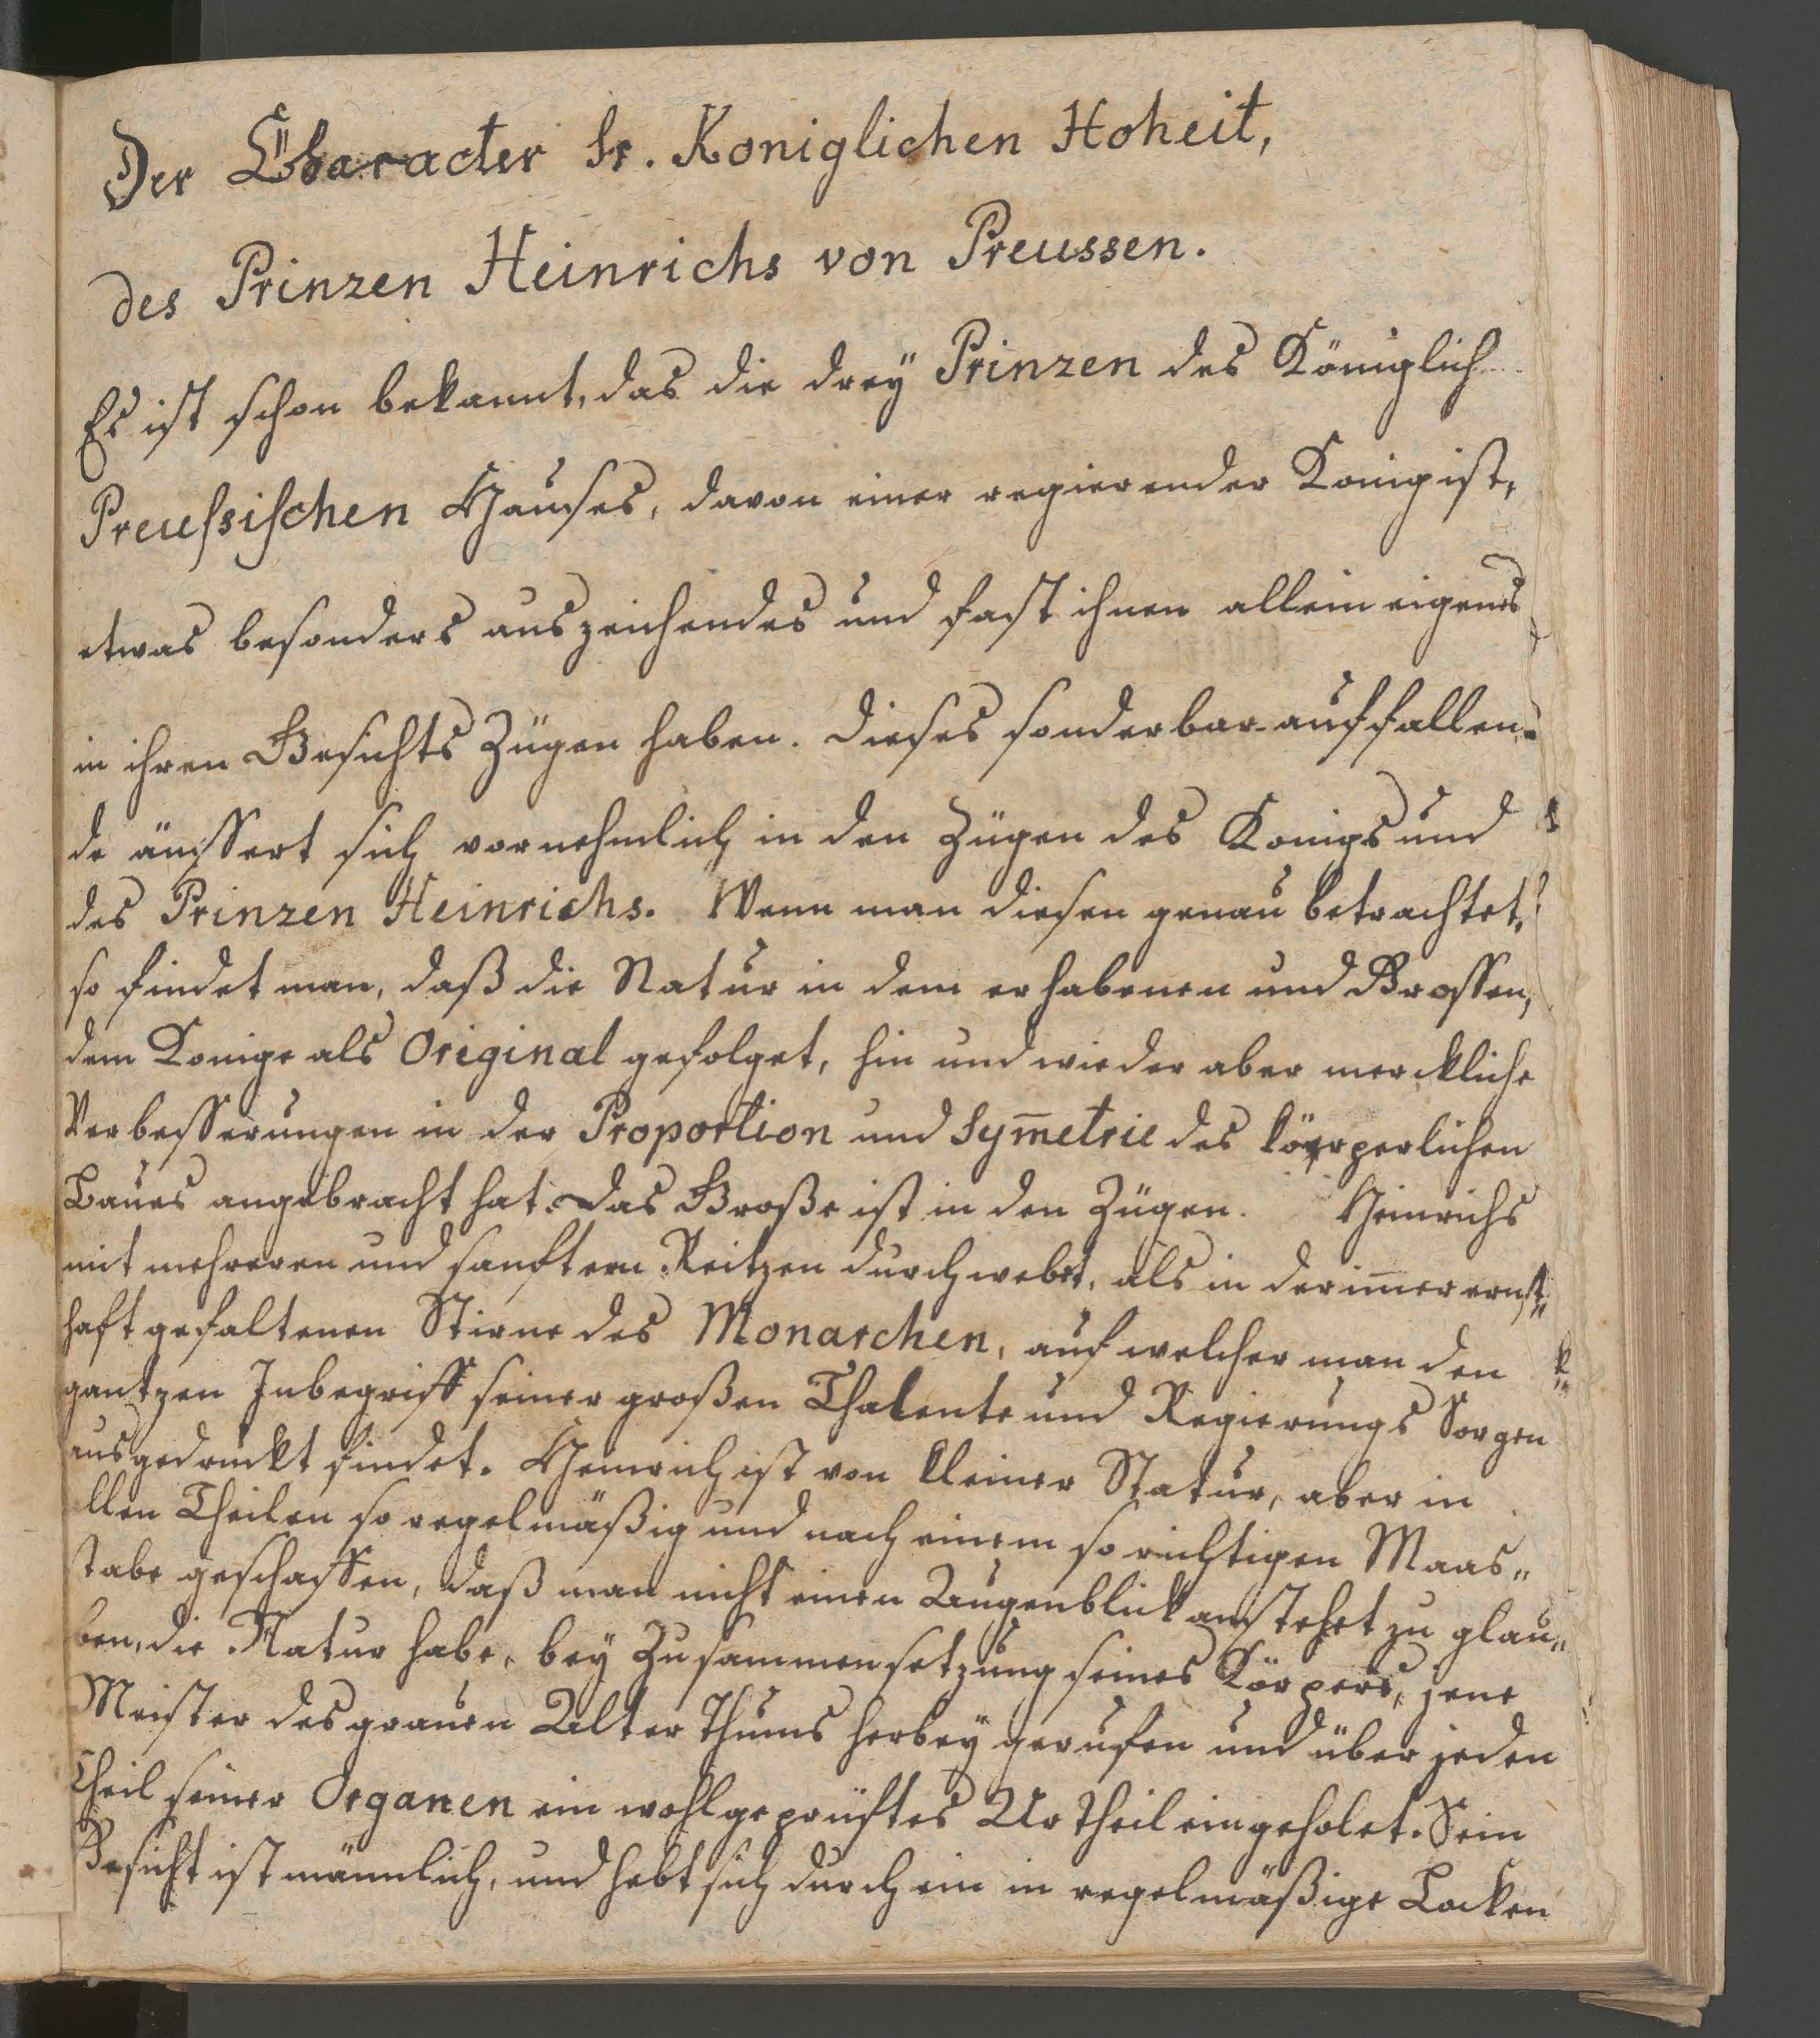 Der Character Sr. Koniglichen Hoheit,
des Prinzen Heinrichs von Preussen.
Es ist schon bekannt, das die drey Prinzen des Königlich
Preussischen Hauses, davon einer regierender Konig ist,
etwas besonders auszeichendes und fast ihnen allein eigenes
in ihren Gesichts Zügen haben. Dieses sonderbar auffallen-
de äussert sich vornehmlich in den Zügen des Konigs und
des Prinzen Heinrichs. Wenn man diesen genau betrachtet,
so findet man, daß die Natur in dem erhabenen und Grossen,
dem Konige als Original gefolget, hin und wieder aber merckliche
Verbesserungen in der Proportion und Sym̅etrie des körperlichen
Baues angebracht hat. Das Große ist in den Zügen. Heinrichs
mit mehreren und sanftern Reitzen durchwebt, als in der im̅er ernst„
haft gefaltenen Stirne des Monarchen, auf welcher man den
gantzen Inbegriff seiner großen Thalente und Regierungs Sorgen
ausgedruckt findet. Heinrich ist von kleiner Statur, aber in
llen Theilen so regelmäßig und nach einem so richtigen Maas„
stabe geschaffen, daß man nicht einen Augenblick anstehet zu glau„
ben, die Natur habe, bey Zusammensetzung seines Körpers, jene
Meister des grauen Alterthums herbey gerufen und über jeden
Theil seiner Organen ein wohlgeprüftes Urtheil eingeholet. Sein
Gesicht ist männlich, und hebt sich durch ein in regelmäßige Locken